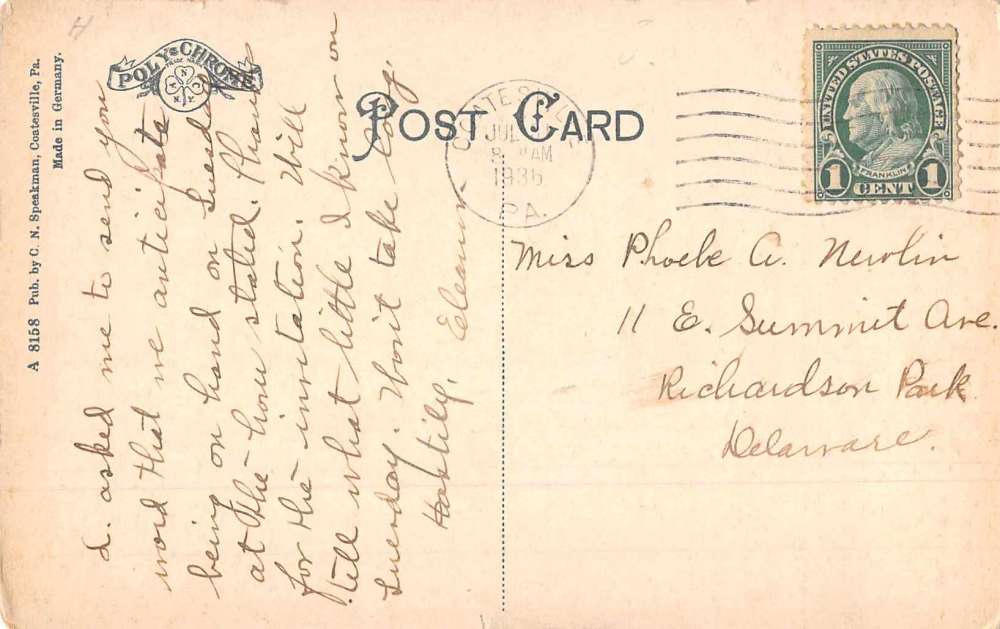 A 8158 Pub. by C. N. Speakman, Coatesville, Pa.
Made in Germany.
H
POLY-CHROME
TRADE MARK
N.Y.
POST CARD
COATESVILLE
JUL
8 AM
1936
PA.
UNITED STATES POSTAGE
FRANKLIN
1 CENT 1
L. asked me to send you
word that we anticipate
being on hand on Tuesday
at the hour stated. Thanks
for the invitation. Will
tell what little I know on
Tuesday. Won't take long.
Hastily,
Eleanor
Miss Phoebe A. Newlin
11 E. Summit Ave.
Richardson Park
Delaware.